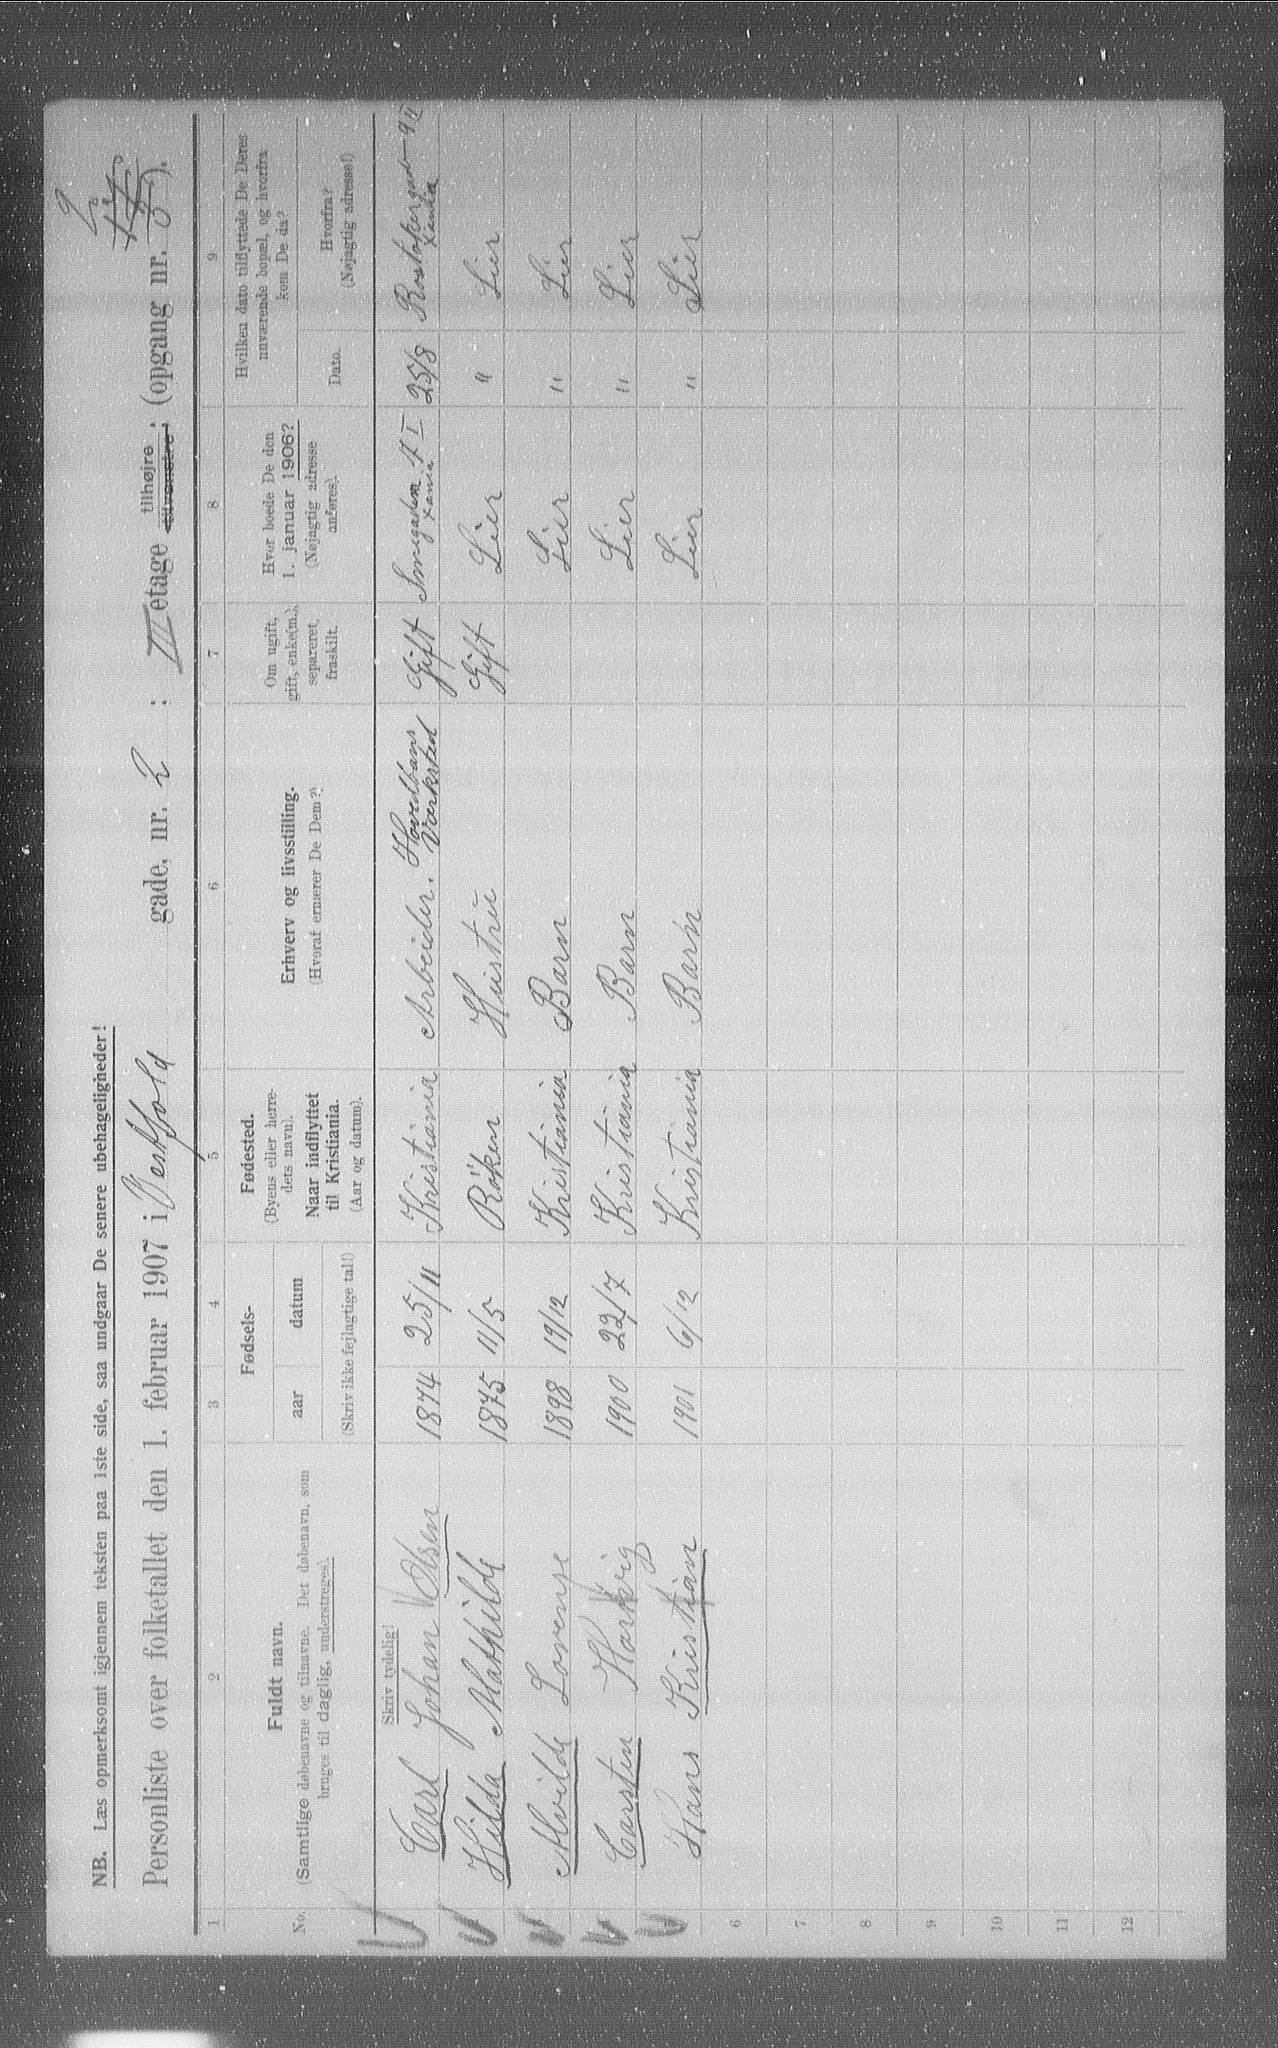 NB. Læs opmerksomt igjennem teksten paa 1ste side, saa undgaar De senere ubehageligheder!
Personliste over folketallet den 1. februar 1907 i Vestfold gade, nr. 2 : III etage tilhøjre tilvenstre ; (opgang nr. ).
2
1 2 3 4 5 6 7 8 9
No.
Fuldt navn.
(Samtlige døbenavne og tilnavne. Det døbenavn, som
bruges til daglig, understreges).
Fødsels-
aar datum
(Skriv ikke fejlagtige tal!)
Fødested.
(Byens eller herre-
dets navn).
Naar indflyttet
til Kristiania.
(Aar og datum).
Erhverv og livsstilling.
(Hvoraf ernærer De Dem?)
Om ugift,
gift, enke(m.),
separeret,
fraskilt.
Hvor boede De den
1. januar 1906?
(Nøjagtig adresse
anføres).
Hvilken dato tilflyttede De Deres
nuværende bopæl, og hvorfra
kom De da?
Dato.
Hvorfra?
(Nøjagtig adresse!)
Skriv tydelig!
Carl Johan Olsen 1874 25/11 Kristiania Arbeider. Hovedbans Værksted Gift Smegaden 7 I Xania 25/8 9 II Xania
Hilda Mathilde 1875 11/5 Röken Hustru Gift Lier " Lier
Alvilde Lovense 1898 19/12 Kristiania Barn Lier " Lier
Carsten Hartvig 1900 22/7 Kristiania Barn Lier " Lier
Hans Kristian 1901 6/12 Kristiania Barn Lier " Lier
6
7
8
9
10
11
12